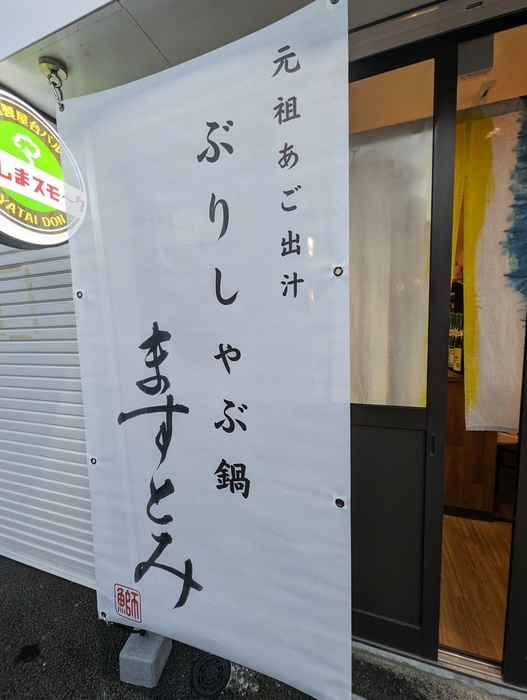 元祖あご出汁
ぶりしゃぶ鍋
ますとみ
鰤
製屋台バル
しまスモーク
YATAI DON